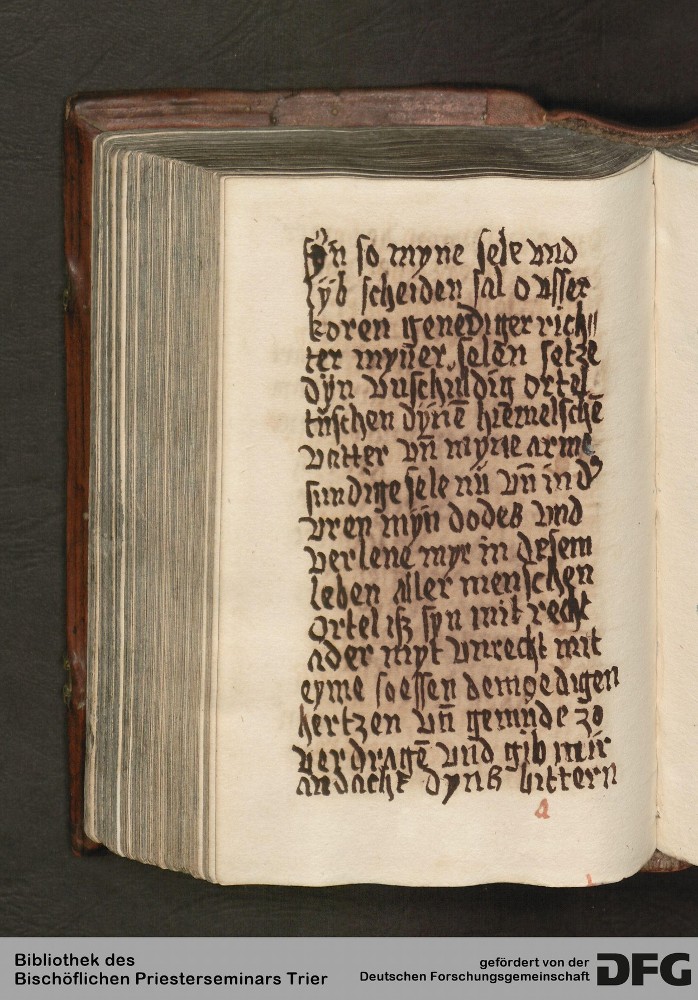 sÿn so myne sele vnd
lÿb scheiden sal o vsser
koren genediger rich〃
ter myner selen setze
dÿn vnschuldig ortel
tuschen dÿnē hiemelschē
vatter vn̄ myne arme
sundige sele nü vn̄ in d
vren mÿn dodes vnd
verlene myr in desem
leben aller menschen
ortel iſz syn mit recht
ader myt vnrecht mit
eyme soessen demoedigen
hertzen vn̄ gemüde zo
verdragē vnd gib mir
andacht dyns bittern
a
Bibliothek des
Bischöflichen Priesterseminars Trier
gefördert von der
Deutschen Forschungsgemeinschaft
DFG